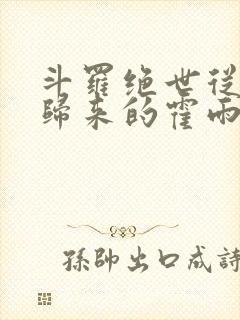 斗羅绝世従
歸来的霍雨
孫帥出口成詩